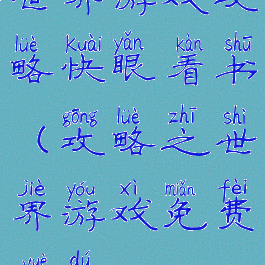 lüè kuài yǎn kàn shū
略快眼看书
gōng lüè zhī shì
(攻略之世
jiè yóu xì miǎn fèi
界游戏免费
yuè dú